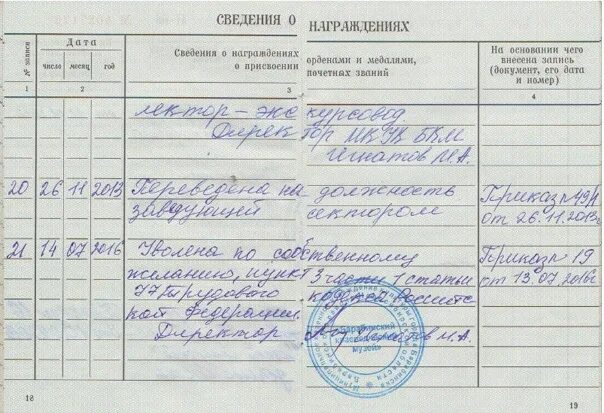 СВЕДЕНИЯ О НАГРАЖДЕНИЯХ
№ записи
Дата
число месяц год
Сведения о награждениях орденами и медалями,
о присвоении почетных званий
На основании чего
внесена запись
(документ, его дата
и номер)
1 2 3 4
лектор-экскурсовод
Директор МКУК БКМ
Игнатов М.А.
20 26 11 2013 Переведена на должность Приказ №49/1
заведующей сектором от 26.11.2013г
21 14 07 2016 Уволена по собственному Приказ 19
желанию, пункт 3 части 1 статьи от 13.07.2016г
77 Трудового кодекса Российс
кой Федерации.
Директор Игнатов М.А.
Барабинский
краеведческий
музей
18 19